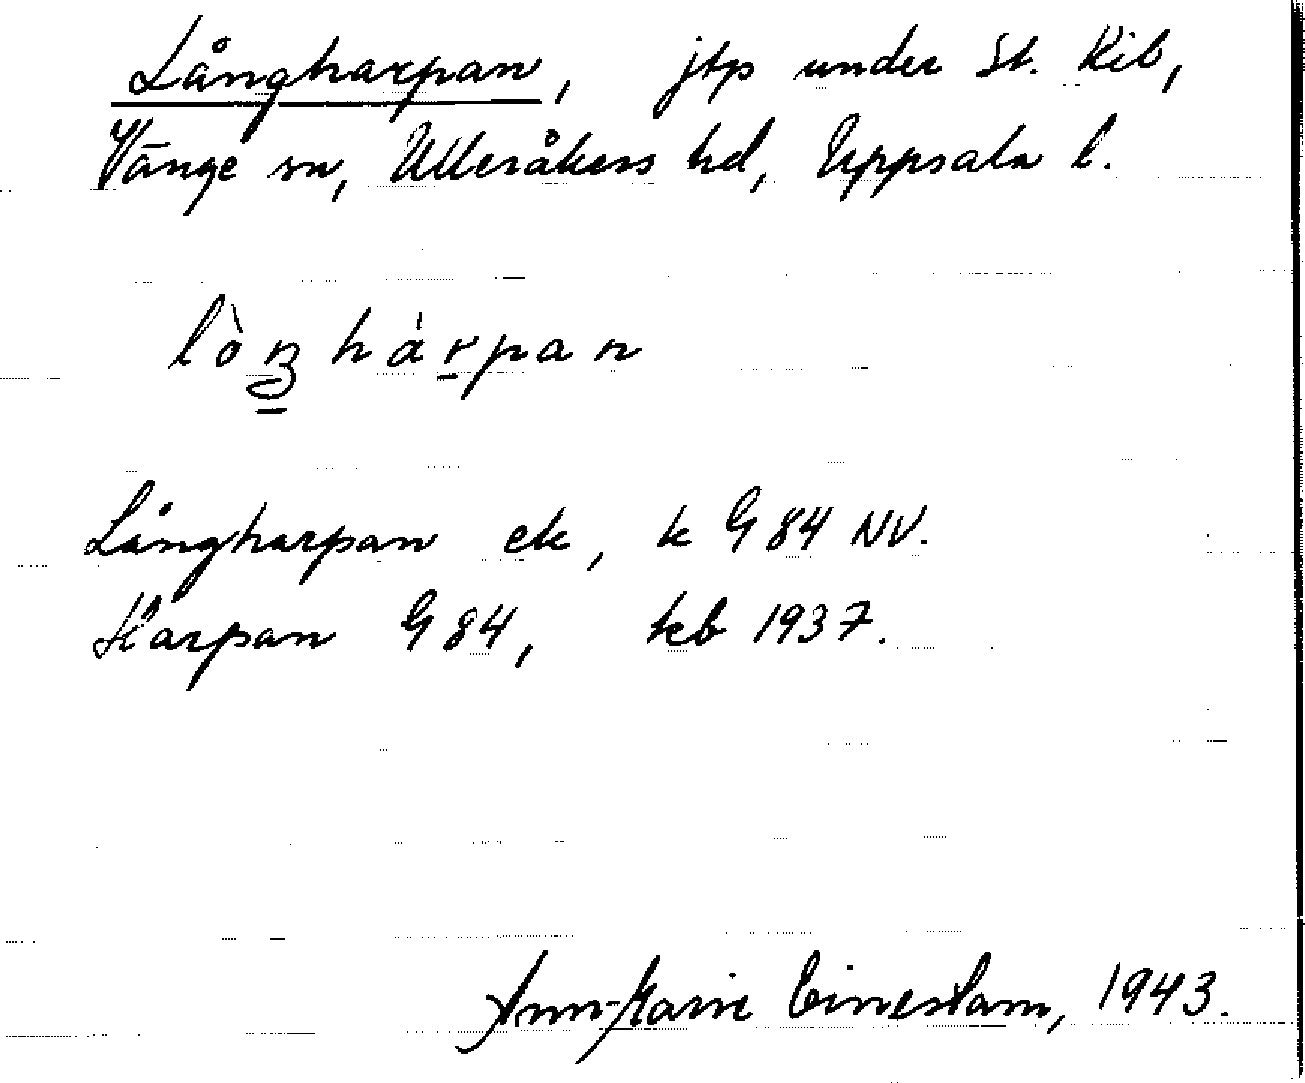 Långharpan, jtp under St. Kil,
Vänge sn, Ulleråkers hd, Uppsala l.
Långharpan ek, k G 84 NV.
Harpan G 84, kb 1937.
Ann-Marie 1943.